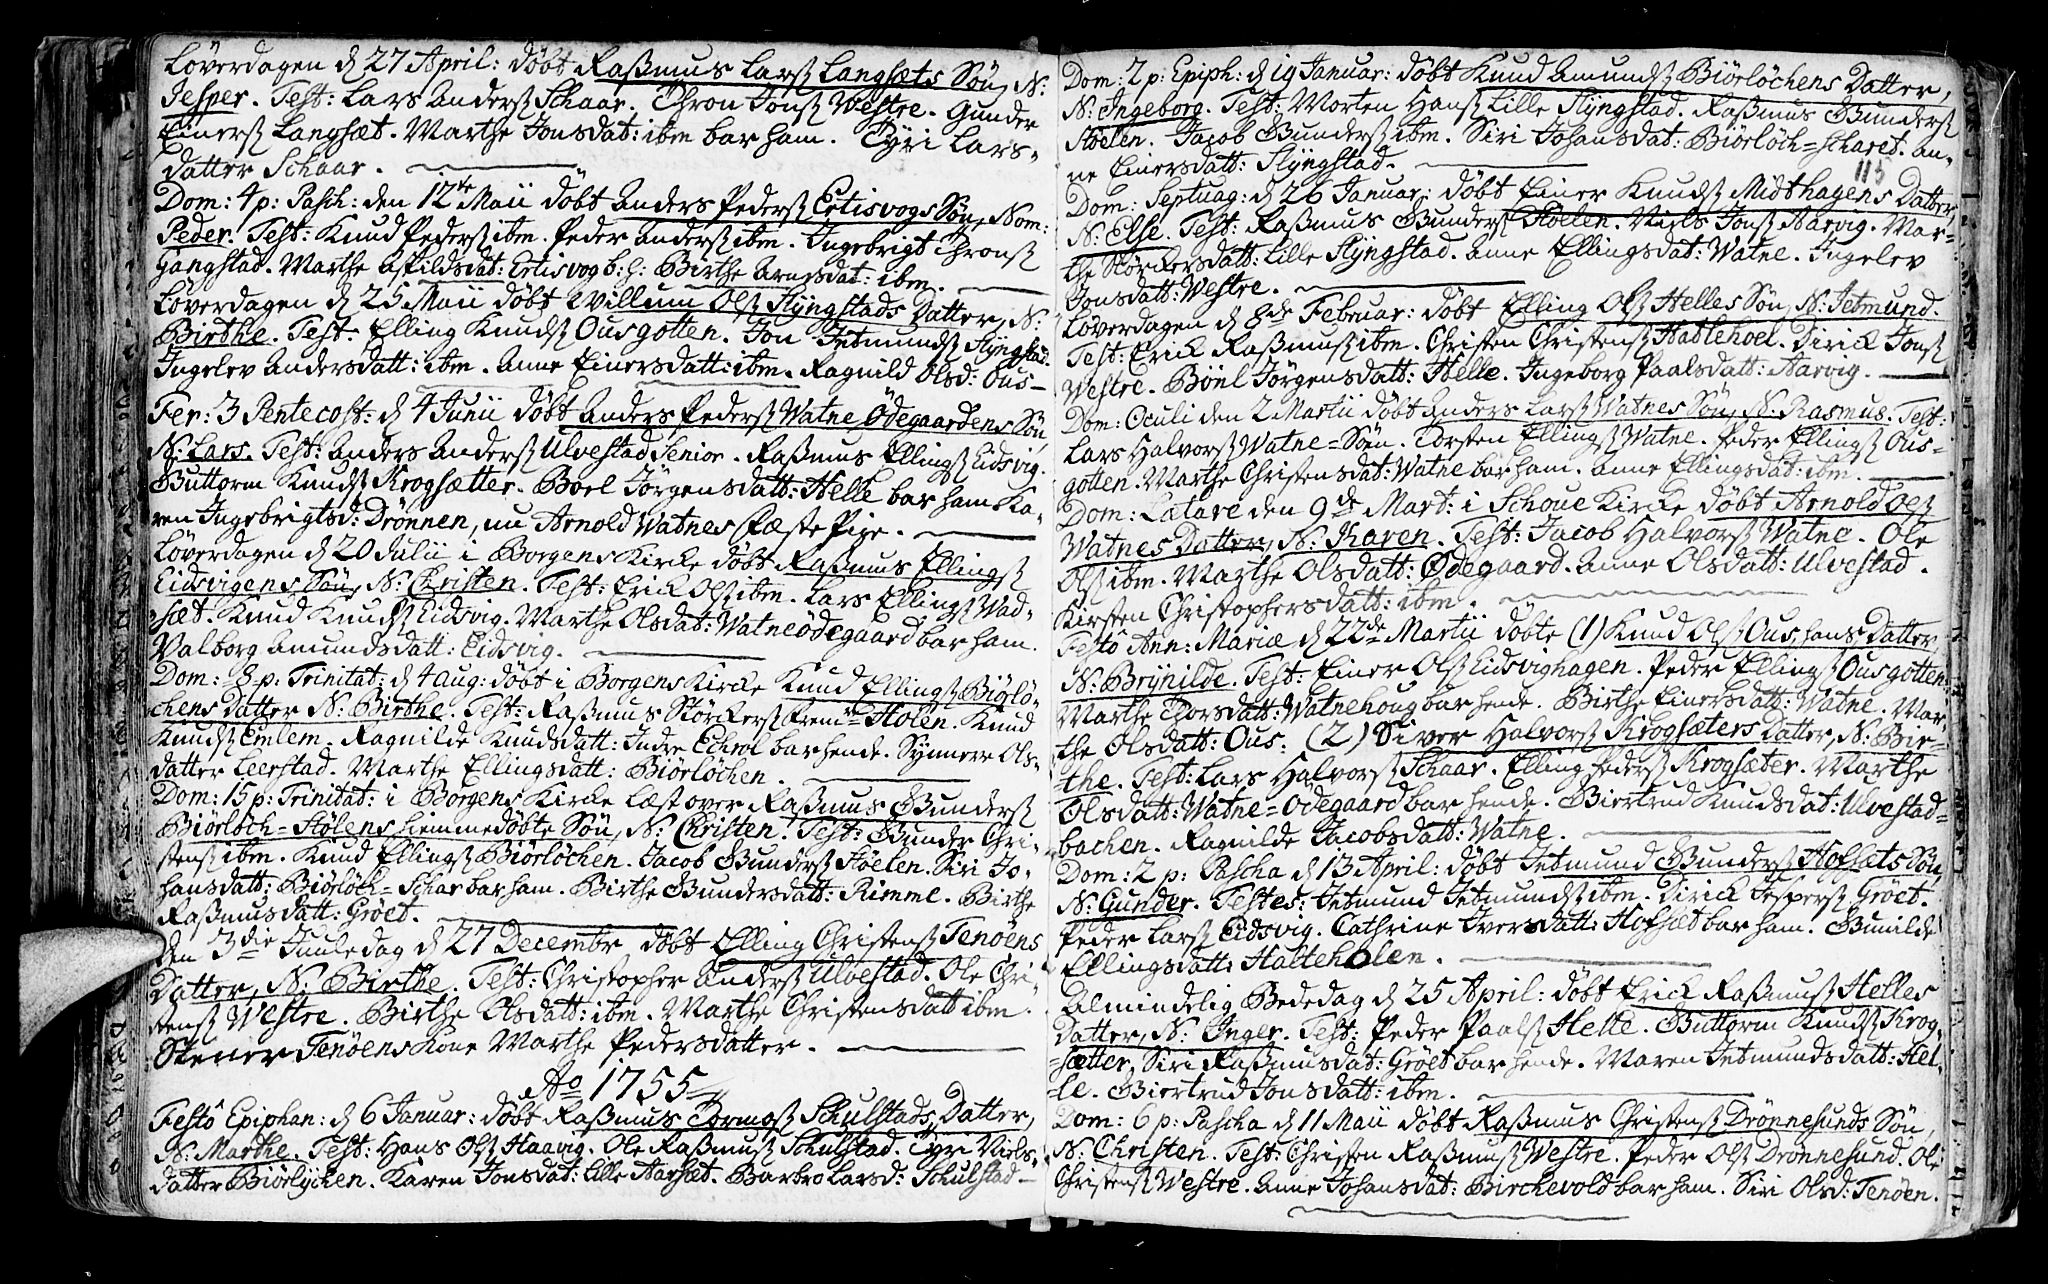 Løverdagen d 27 April: døbt Rasmus Larss Langsæts Søn, N:
Jesper. Test: Lars Anderss Schaar. Thron Jonss Westre. Gunder
Einerss Langsæt. Marthe Jonsdat: ibm bar ham. Tyri Lars-
datter Schaar.
Dom: 4 p: Pasch: den 12te Maii døbt Anders Pederss Ertisvogs Søn, Nom:
Peder. Test: Knud Pederss ibm. Peder Anderss ibm. Ingebrigt Thronss
Gangstad. Marthe Aspildsdat: Ertisvog b: h: Birthe Arnesdat: ibm.
Løverdagen d 25 Maii døbt Willum Olss Slyngstads Datter, N:
Birthe. Test: Elling Knudss Ousgotten. Jon Jetmundss Slyngstad.
Ingelev Andersdatt: ibm. Anne Einersdatt: ibm. Ragnild Olsd: Ous-
Fer: 3 Pentecost: d 4 Junii døbt Anders Pederss Watne Ødegaardens Søn,
N: Lars. Test: Anders Anderss Ulvestad Senior. Rasmus Ellingss Eidsvig.
Buttorm Knudss Krogsætter. Boel Jørgensdatt: Helle bar ham. Ka-
ren Ingebrigtsd: Drönnen, nu Arnold Watnes Fæste Pige.
Løverdagen d 20 Julii i Borgens Kirke døbt Rasmus Ellingss
Eidsvigens Søn, N: Christen. Test: Erick Olss ibm. Lars Ellingss Wad-
sæt. Knud Knudss Eidsvig. Marthe Olsdat: Watneødegaard bar ham.
Valborg Amundsdatt: Eidsvig.
Dom: 8 p: Trinitat: d 4 Aug: døbt i Borgens Kirke Knud Ellingss Biörlö-
chens Datter N: Birthe. Test: Rasmus Störckerss Frem: Holen. Knud
Knudss Emlem. Ragnilde Knudsdatt: Indre Echrol bar hende. Synneve Ols-
datter Leerstad. Marthe Ellingsdatt: Biörlöchen.
Dom: 15 p: Trinitat: i Borgens Kirke læst over Rasmus Gunderss
Biörlöch-Stölens hiemmedøbte Søn, N: Christen. Test: Gunder Chri-
stenss ibm. Knud Ellingss Biörlöchen. Jacob Gunderss Stöelen. Siri Jo-
hansdatt: Biörlöch-Schar bar ham. Birthe Gundersdatt: Rimme. Birthe
Rasmusdatt: Gröet.
Den 3die Juuledag d 27 Decembr døbt Elling Christenss Tenöens
Datter, N: Birthe. Test: Christopher Anderss Ulvestad. Ole Chri-
stenss Westre. Birthe Olsdatt: ibm. Marthe Christensdatt ibm.
Stener Tenöens Kone Marthe Pedersdatter.
Ao 1755
Festô Epiphan: d 6 Januar: døbt Rasmus Tormoss Schulstads Datter,
N: Marthe. Test: Hans Olss Haavig. Ole Rasmuss Schulstad. Tyri Niels-
datter Biörlychen. Karen Jonsdat: Lille Aarsæt. Barbro Larsd: Schulstad-
Dom: 2 p: Epiph: d 19 Januar: døbt Knud Amundss Biörlöchens Datter,
N: Ingeborg. Test: Morten Hanss Lille Slyngstad. Rasmus Gunderss
Stöelen. Jacob Gunderss ibm. Siri Johansdat: Biörlöch-scharet. An-
ne Einersdatt: Slyngstad.
115
Dom: Septuag: d 26 Januar: døbt Einer Knudss Midthagens Datter,
N: Else. Test: Rasmus Gunderss Stöelen. Niels Jonss Aarvig. Mar-
the Störckersdatt: Lille Slyngstad. Anne Ellingsdat: Watne. Ingelev
Jonsdatt: Westre.
Løverdagen d 8de Februar: døbt Elling Olss Helles Søn, N: Jetmund.
Test: Erick Rasmuss ibm. Christen Christenss Hattehoel. Dirick Jonss
Westre. Böel Jörgensdatt: Helle. Ingeborg Paalsdatt: Aarvig.
Dom: Oculi den 2 Martii døbt Anders Larss Watnes Søn, N: Rasmus. Test:
Lars Halvorss Watne-Søn. Torsten Ellingss Watne. Peder Ellingss Ous-
gotten. Marthe Christensdat: Watne bar ham. Anne Ellingsdat: ibm.
Dom: Lætare den 9de Mart: i Schoue Kircke døbt Arnold Olss
Watnes Datter, N: Karen. Test: Jacob Halvorss Watne. Ole
Olss ibm. Marthe Olsdatt: Ødegaard. Anne Olsdatt: Ulvestad.
Kirsten Christophersdatt: ibm.
Festô Ann: Mariæ d 22de Martii døbte (1) Knud Olss Ous, hans Datter,
N: Brynilde. Test: Einer Olss Eidsvighagen. Peder Ellingss Ousgotten.
Marthe Torsdatt: Watnehoug bar hende. Birthe Einersdatt: Watne. Mar-
the Olsdatt: Ous: (2) Siver Halvorss Krogsæters Datter, N: Bir-
the. Test: Lars Halvorss Schaar. Elling Pederss Krogsæter. Marthe
Olsdatt: Watne-Ødegaard bar hende. Biertrud Knudsdat: Ulvestad-
bachen. Ragnilde Jacobsdatt: Watne.
Dom: 2 p: Pascha d 13 April: døbt Jetmund Gunderss Hofsæts Søn,
N: Gunder. Testes: Jetmund Jetmundss ibm. Dirick Jesperss Gröet.
Peder Larss Eidsvig. Cathrine Iversdatt: Hofsæt bar ham. Gunilde
Ellingsdatt: Hatteholen.
Almindelig Bededag d 25 April: døbt Erick Rasmuss Helles
Datter, N: Inger. Test: Peder Paalss Helle. Buttorm Knudss Krog-
sætter. Siri Rasmusdat: Gröet bar hende. Maren Jetmundsdatt: Hel-
le. Biertrud Jonsdatt: ibm.
Dom: 6 p: Pascha d 11 Maii døbt Rasmus Christenss Drönnesunds Søn,
N: Christen. Test: Christen Rasmuss Westre. Peder Olss Drönnesund. Ole
Christenss Westre. Anne Johansdat: Birchevold bar ham. Siri Olsd: Tenöen.